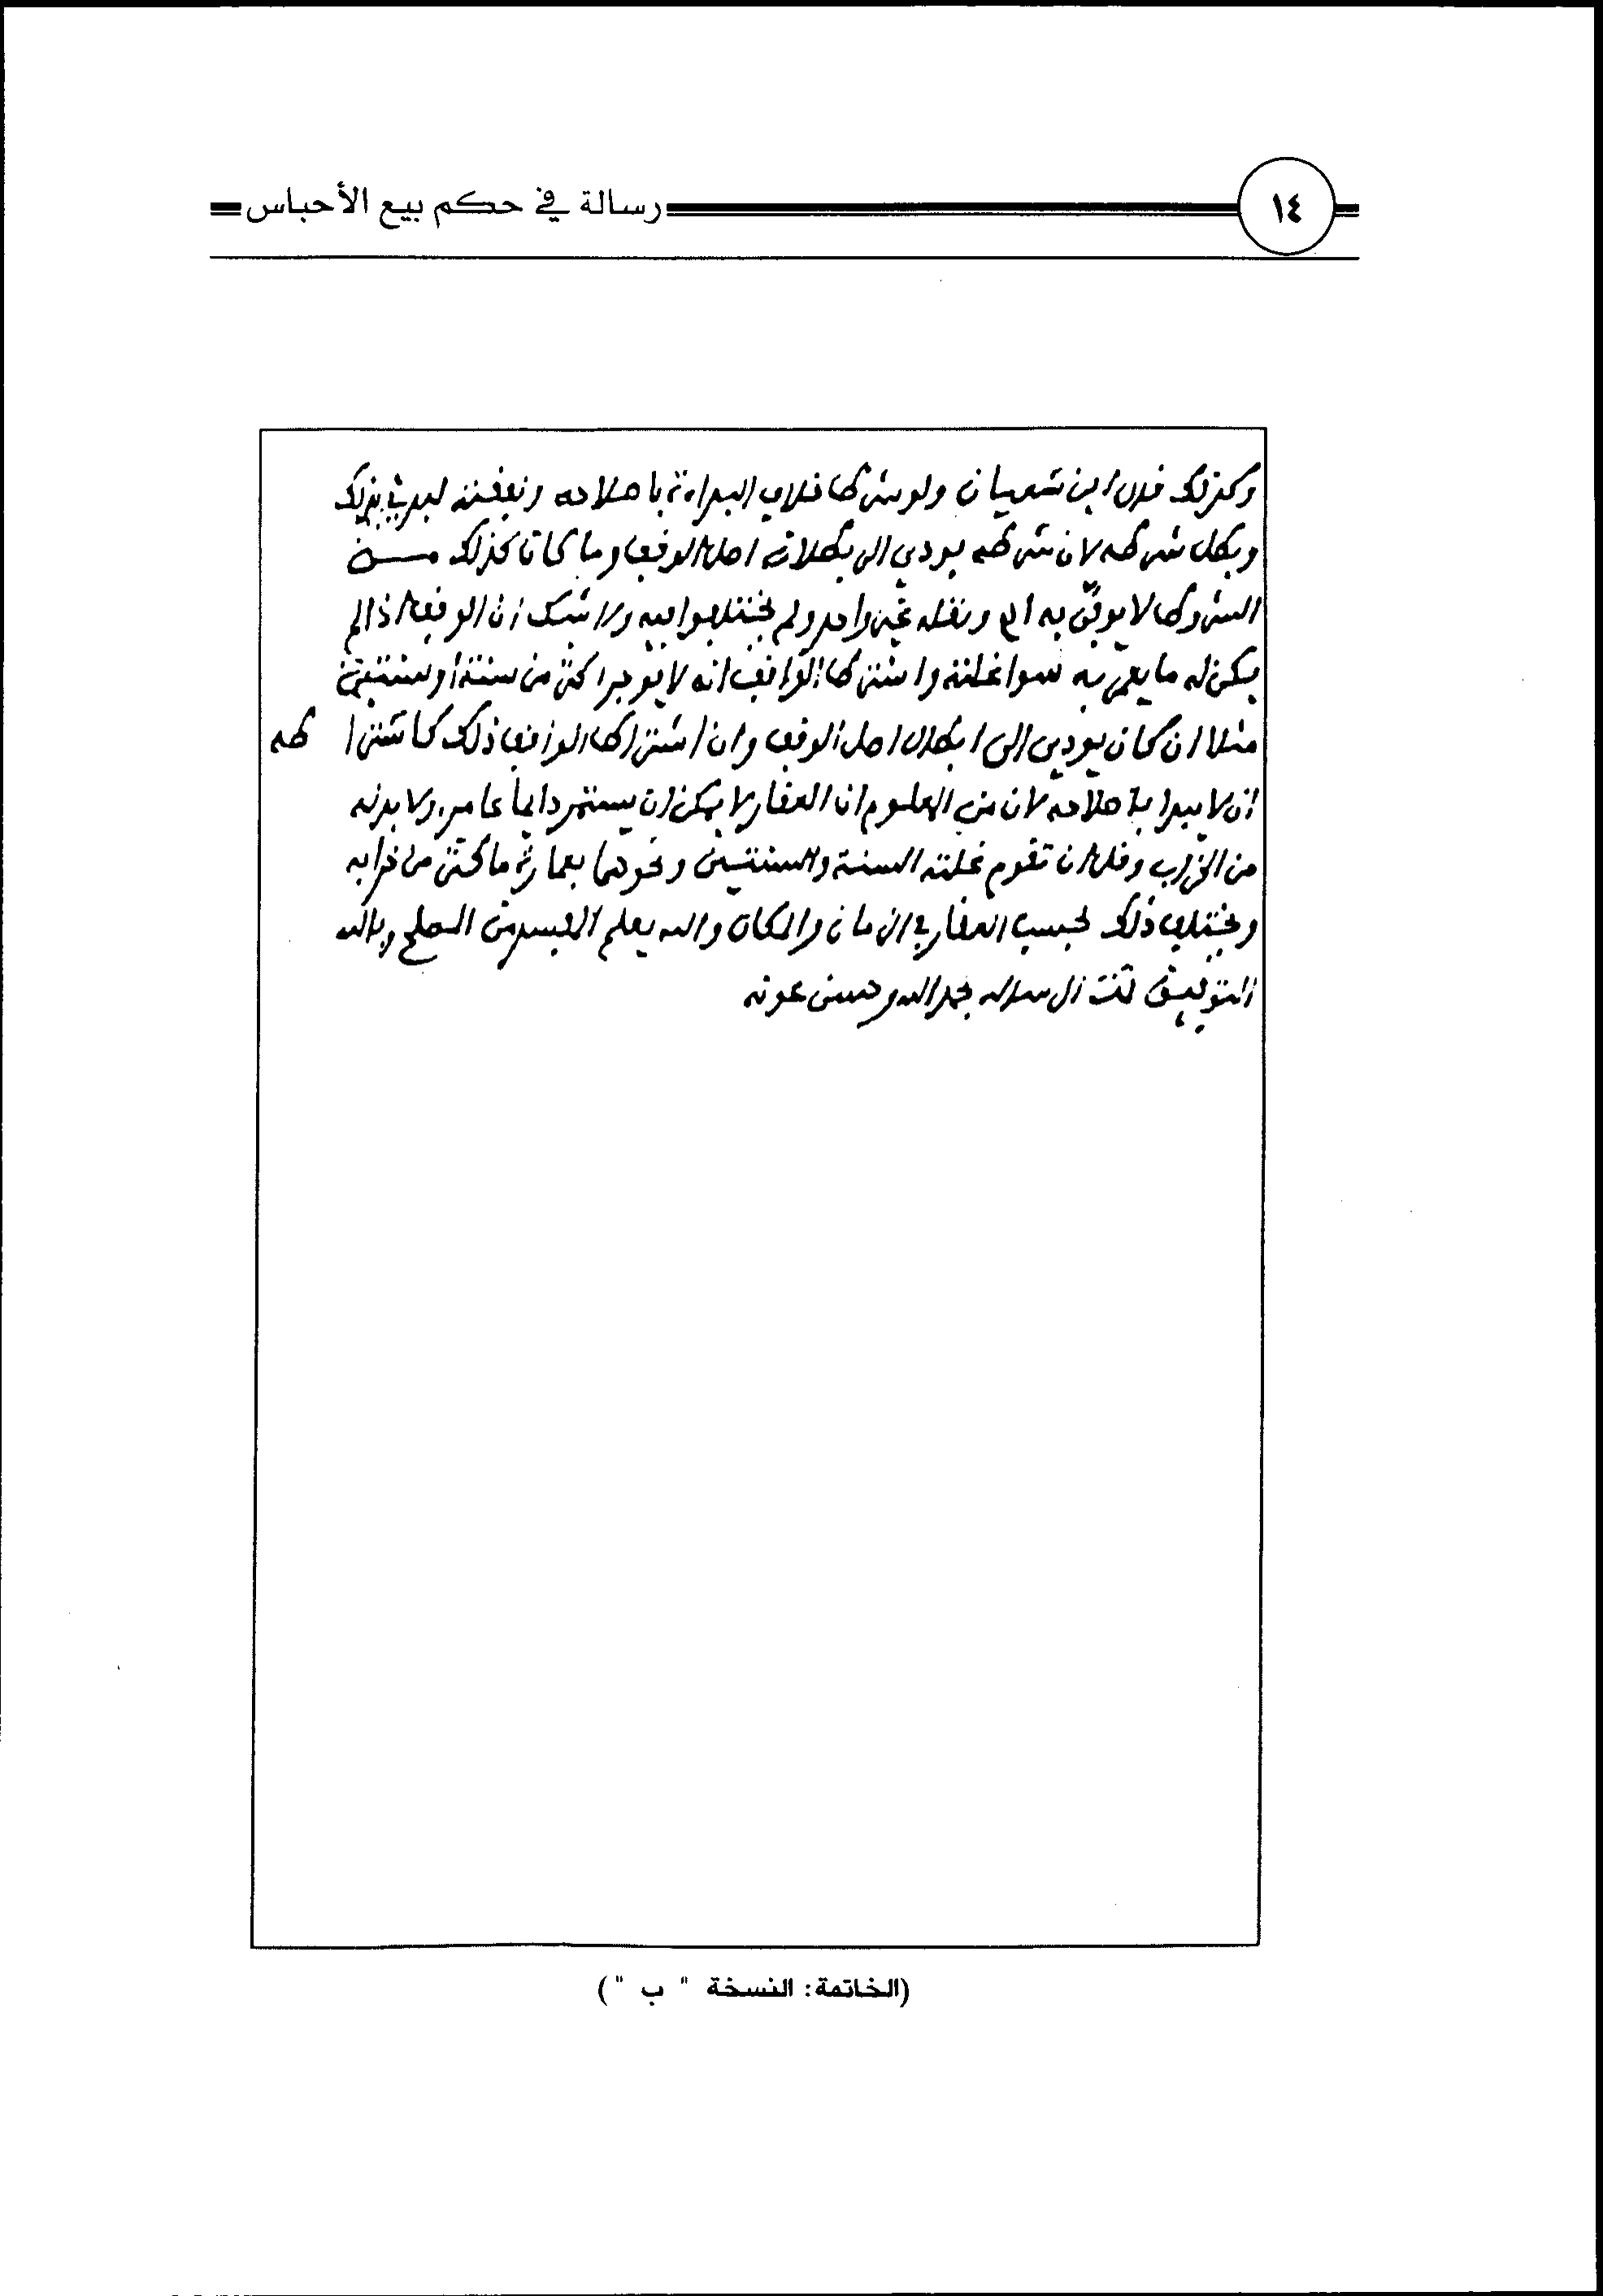 ١٤
رسالة في حكم بيع الأحباس
وكذلك قال ابن شعبان ولو شرط خلاف البداءة باصلاحه ونفقته لبدئ بذلك
وبطل شرطه لان شرطه يودي الى بطلان اصل الوقف وما كان كذلك مـــن
الشروط لا يوفى به اﻫ ونقله غير واحد ولم يختلفوا فيه ولا شك ان الوقف اذا لم
يكن له ما يعمر به سوا غلته واشترط الواقف انه لا يوجر اكثر من سنة أو سنتين
مثلا ان كان يودي الى ابطال اصل الوقف وان اشتراط الواقف ذلك كاشترا طه
ان لا يبدا باصلاحه لان من المعلوم ان العقار لا يمكن ان يستمر دايما عامر ولا بد له
من الخراب وقل ان تقوم غلته السنة والسنتين ونحوهما بعمارة ما كثر من خرابه
ويختلف ذلك بحسب العقار في الزمان والمكان والله يعلم المفسد من المصلح وبالله
التوفيق تمت الرسالة بحمد الله وحسن عونه
(الخاتمة: النسخة " ب ")